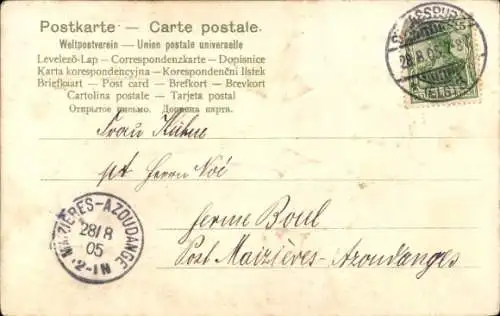 Postkarte — Carte postale.
Weltpostverein — Union postale universelle
Levelező-Lap — Correspondenzkarte — Dopisnice
Karta korespondencyjna — Korespondenční lístek
Briefkaart — Post card — Brefkort — Brevkort
Cartolina postale — Tarjeta postal
Открытое письмо. Дописна карта.
Frau Kühne
pt Herrn Noé
ferme Boul
Post Maizières-Azoudanges
MAIZIERES-AZOUDANGE
28/8
05
12-1N
STRASSBURG
28.8.05
(ELS.)